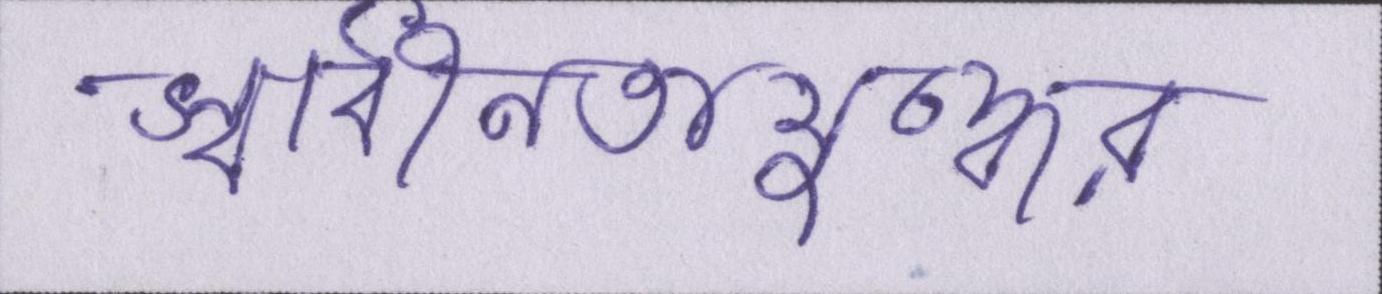 স্বাধীনতাযুদ্ধের